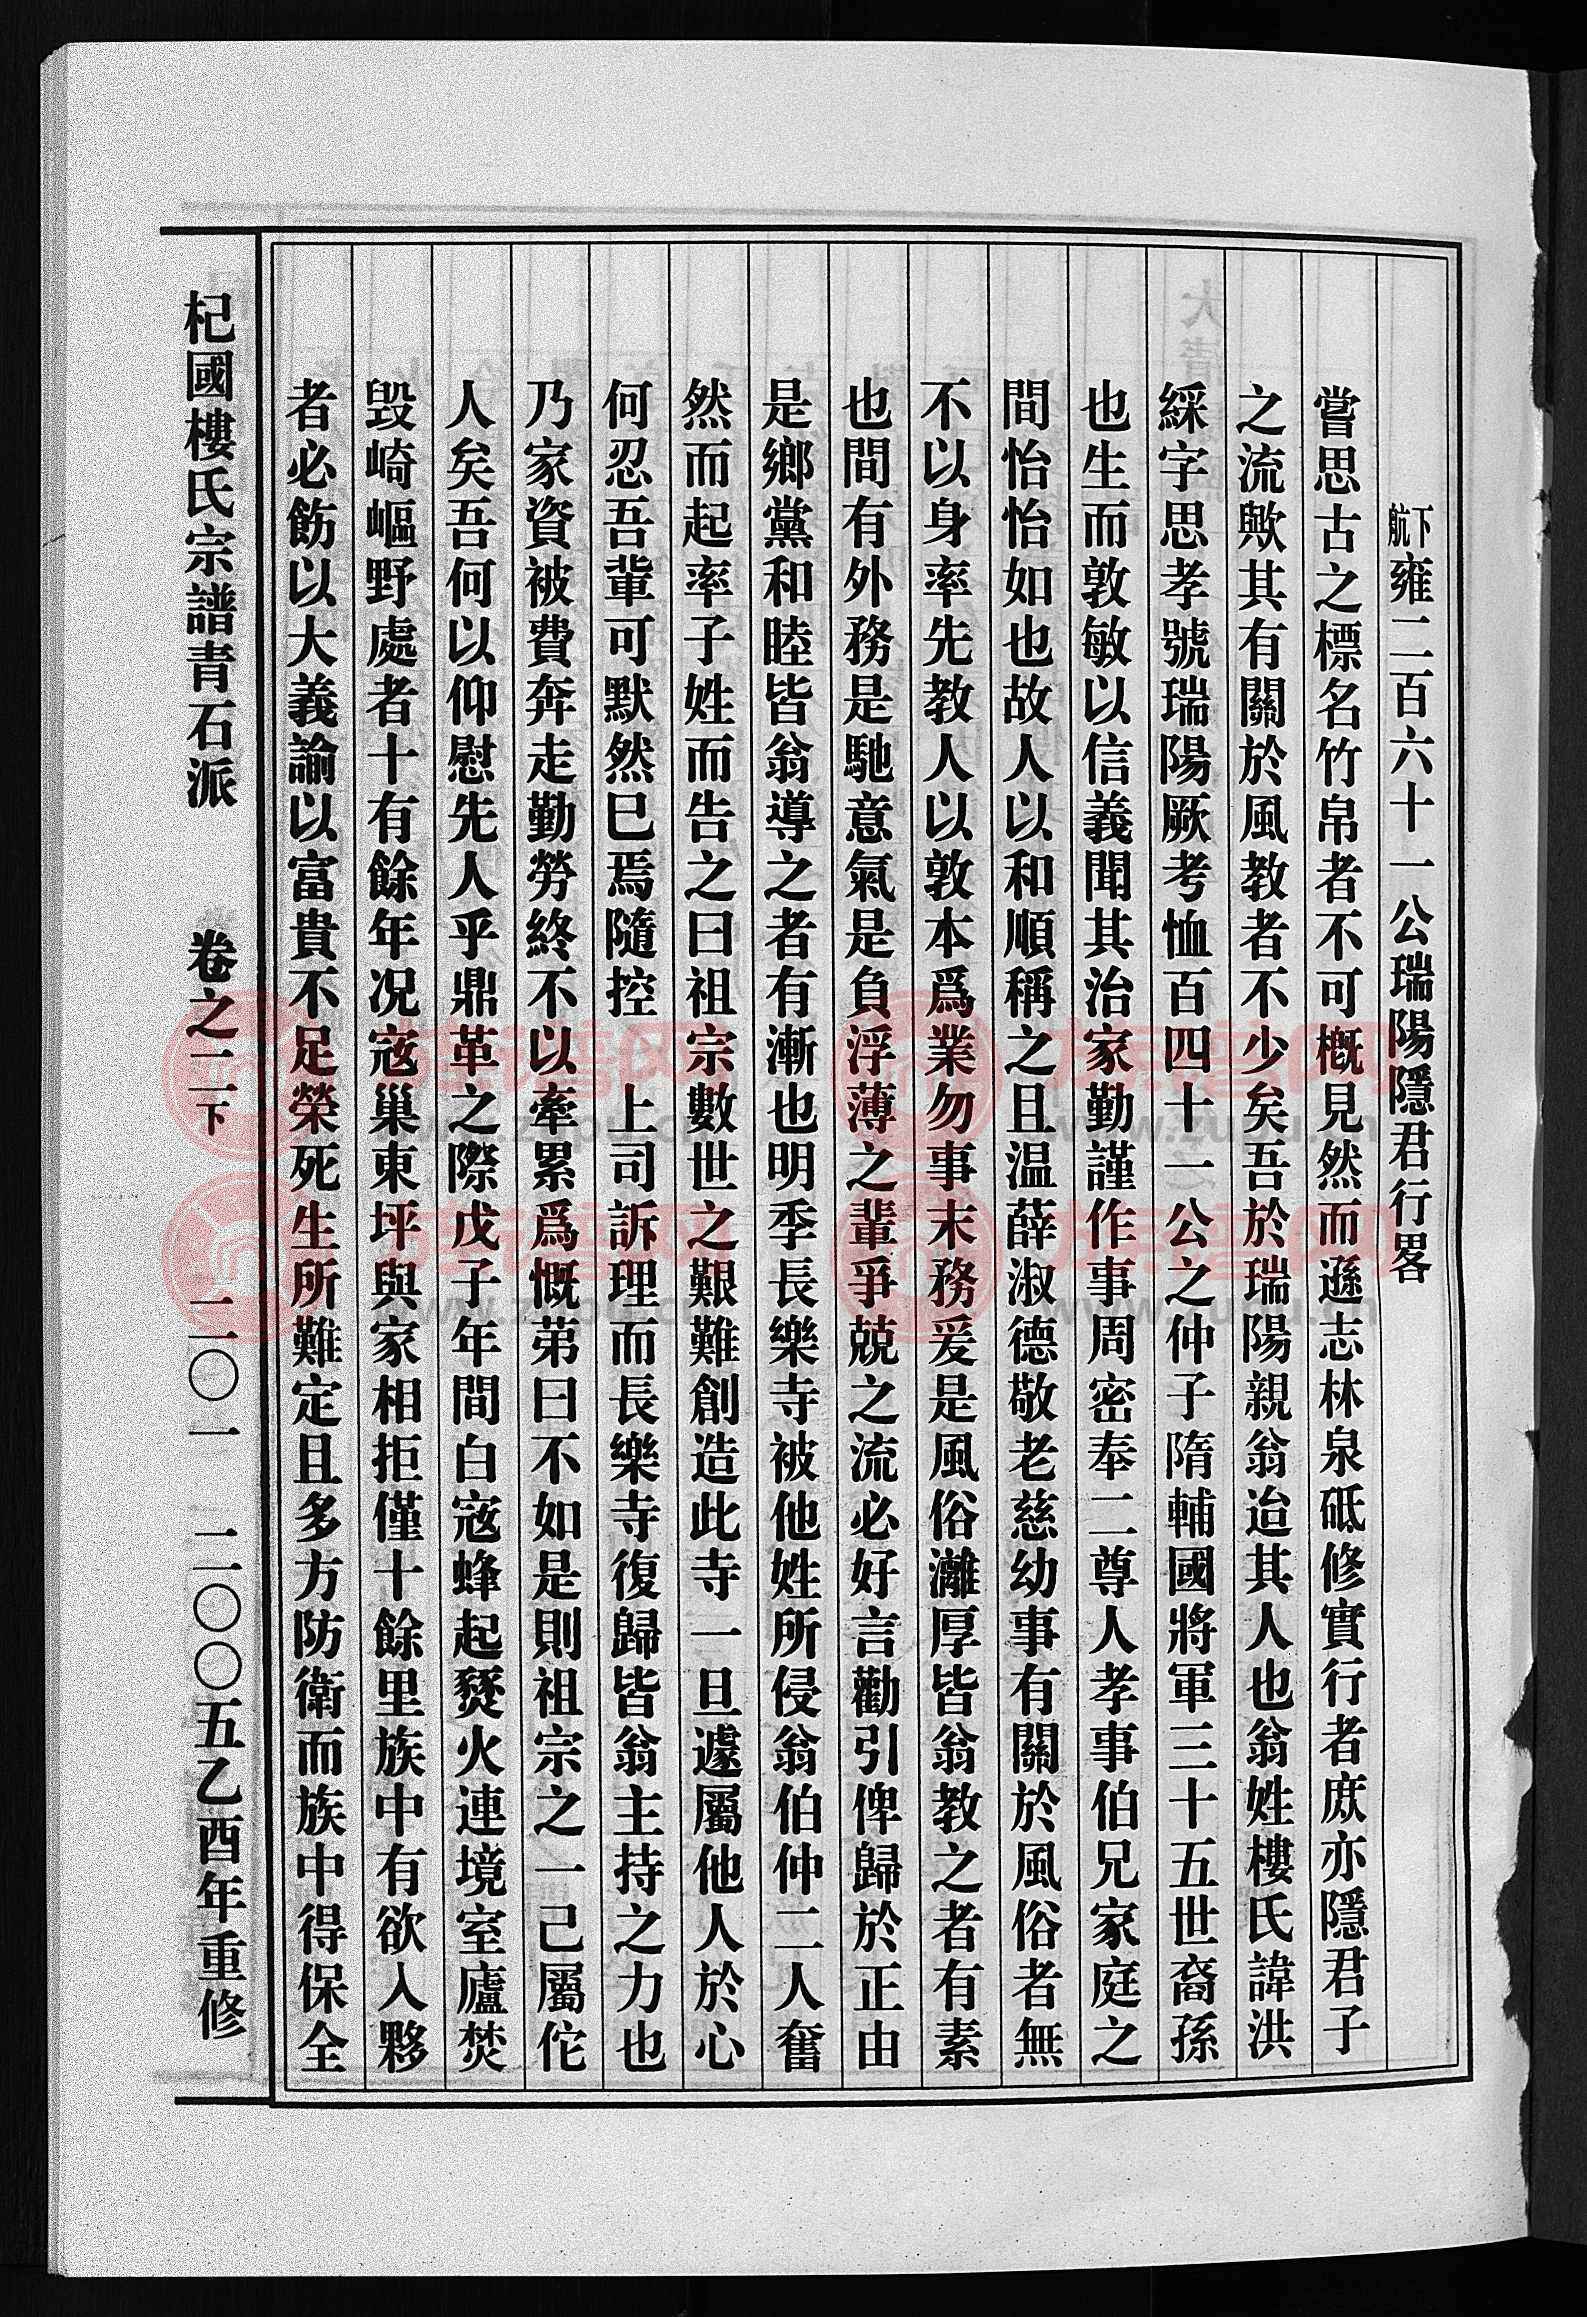 下航雍二百六十一公瑞陽隱君行畧
嘗思古之標名竹帛者不可概見然而遜志林泉砥修實行者庶亦隱君子
之流歟其有關於風教者不少矣吾於瑞陽親翁迨其人也翁姓樓氏諱洪
綵字思孝號瑞陽厥考恤百四十一公之仲子隋輔國將軍三十五世裔孫
也生而敦敏以信義聞其治家勤謹作事周密奉二尊人孝事伯兄家庭之
間怡怡如也故人以和順稱之且温薛淑德敬老慈幼事有關於風俗者無
不以身率先教人以敦本爲業勿事末務爰是風俗灕厚皆翁教之者有素
也間有外務是馳意氣是負浮薄之輩爭兢之流必好言勸引俾歸於正由
是鄉黨和睦皆翁導之者有漸也明季長樂寺被他姓所侵翁伯仲二人奮
然而起率子姓而告之曰祖宗數世之艱難創造此寺一旦遽屬他人於心
何忍吾輩可默然巳焉隨控　上司訴理而長樂寺復歸皆翁主持之力也
乃家資被費奔走勤勞終不以牽累爲慨苐曰不如是則祖宗之一己屬佗
人矣吾何以仰慰先人乎鼎革之際戊子年間白寇蜂起燹火連境室廬焚
毀崎嶇野處者十有餘年况寇巢東坪與家相拒僅十餘里族中有欲入夥
者必飭以大義諭以富貴不足榮死生所難定且多方防衛而族中得保全
杞國樓氏宗譜青石派　卷之二下　一二〇一　二〇〇五乙酉年重修